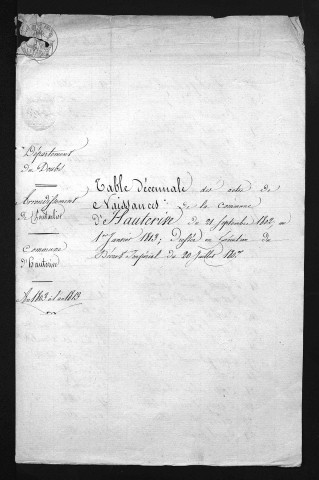 Département
du Doubs
Arrondissement
de Pontarlier
Commune
d'Hauterive
An 1803 à l'an 1813
Table décennale des actes de
Naissances de la commune
d'Hauterive du 21 Septembre 1802 au
1er Janvier 1813; Dressée en Exécution du
Décret Impérial du 20 Juillet 1807